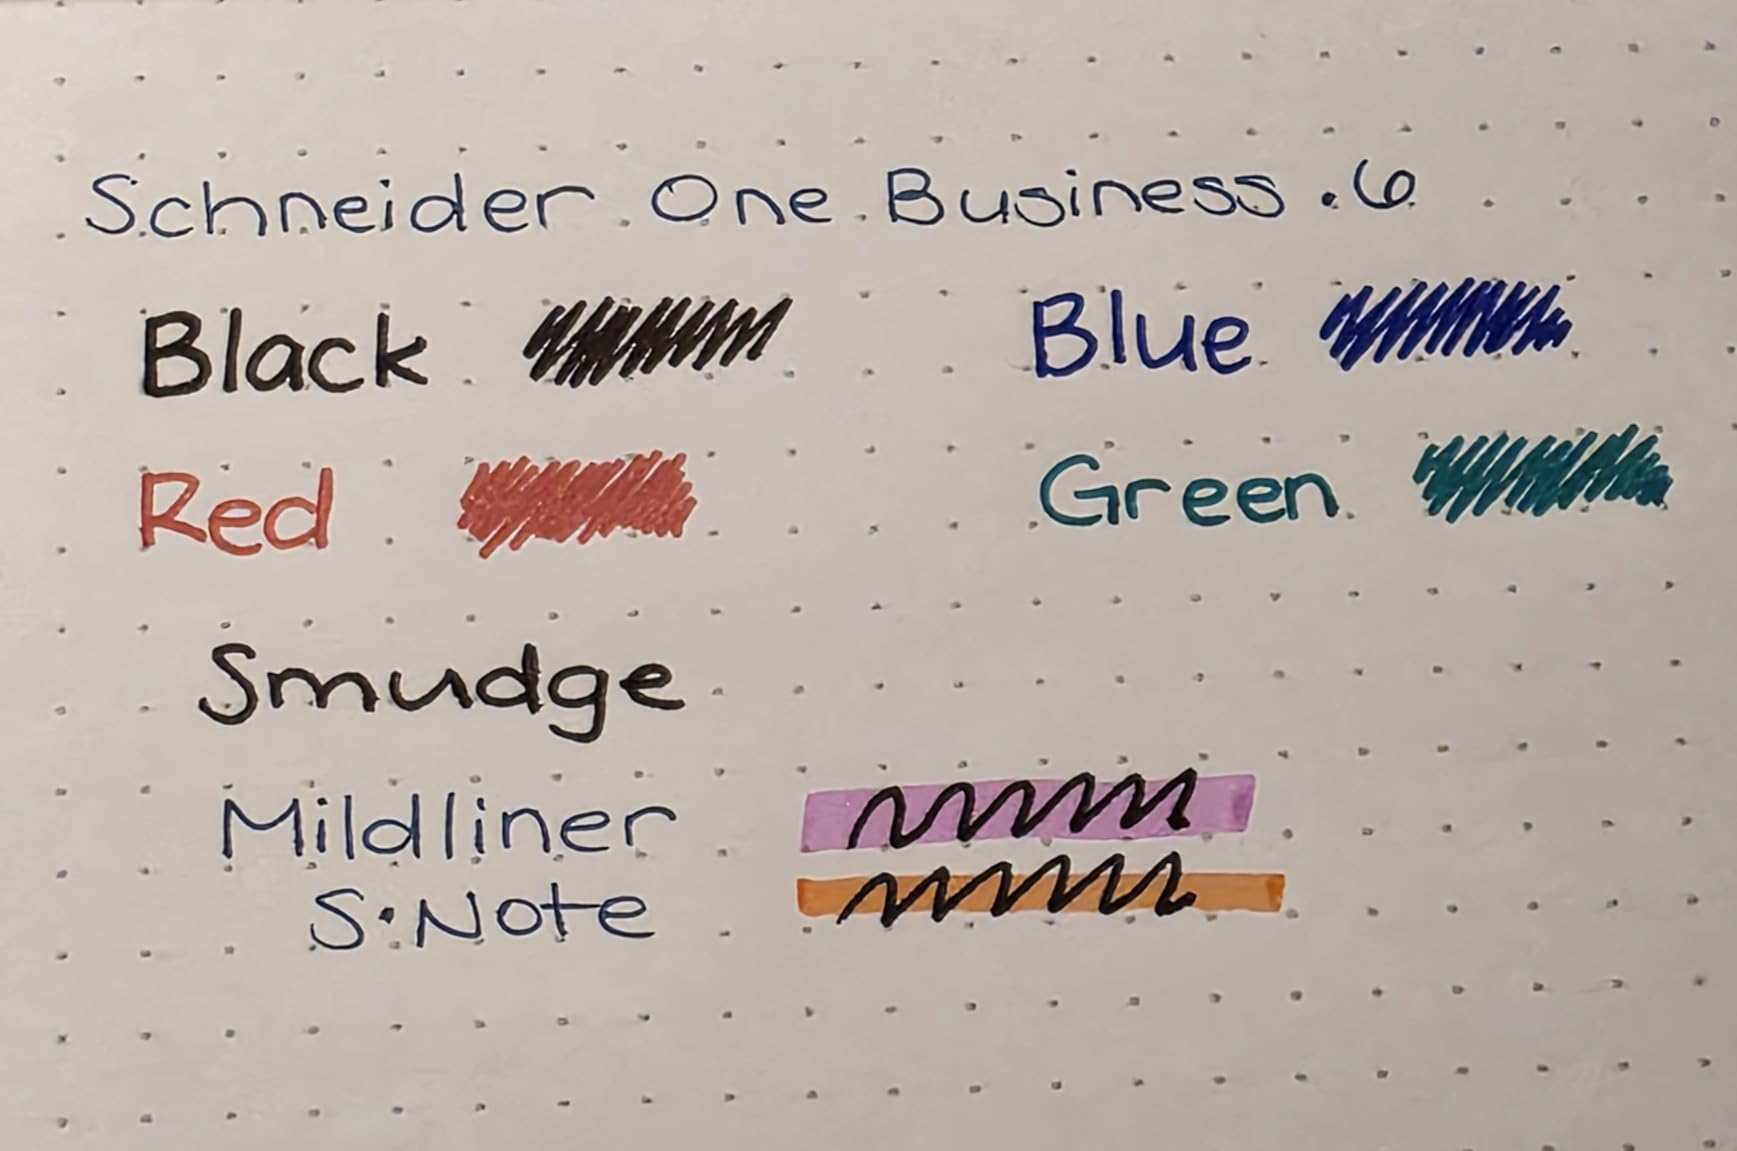 Schneider One Business .6
Black Blue
Red Green
Smudge
Mildliner
S·Note